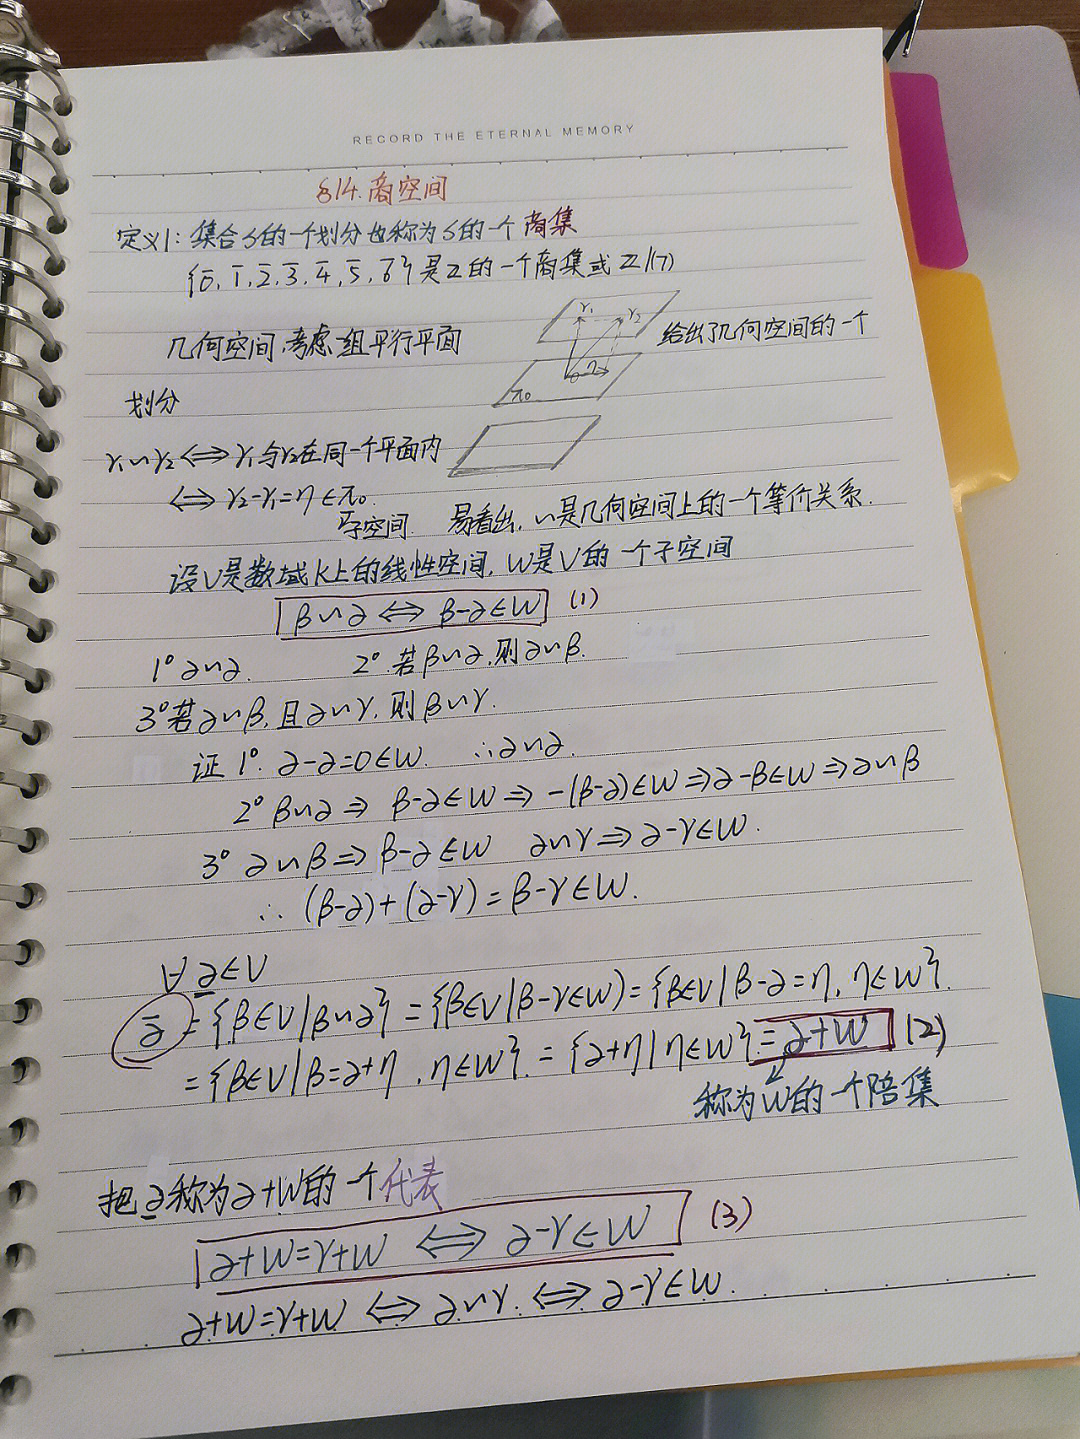 RECORD THE ETERNAL MEMORY
§14.商空间
定义1:集合S的一个划分也称为S的一个商集
{0̄,1̄,2̄,3̄,4̄,5̄,6̄}是Z的一个商集或Z/(7)
几何空间,考虑一组平行平面 给出了几何空间的一个
γ₁ γ₂
η
π₀
划分
γ₁∽γ₂⟺γ₁与γ₂在同一个平面内
⟺γ₂-γ₁=η∈π₀.
子空间 易看出,∽是几何空间上的一个等价关系.
设V是数域K上的线性空间,W是V的一个子空间
β∽α⟺β-α∈W (1)
1°α∽α. 2°.若β∽α,则α∽β.
3°若α∽β,且α∽γ,则β∽γ.
证1°.α-α=0∈W. ∴α∽α.
2°β∽α⇒β-α∈W⇒-(β-α)∈W⇒α-β∈W⇒α∽β
3°α∽β⇒β-α∈W α∽γ⇒α-γ∈W.
∴(β-α)+(α-γ)=β-γ∈W.
∀α∈V
ᾱ={β∈V|β∽α}={β∈V|β-γ∈W}={β∈V|β-α=η,η∈W}.
={β∈V|β=α+η,η∈W}.={α+η|η∈W}=α+W (2)
称为W的一个陪集
把α称为α+W的一个代表
α+W=γ+W⟺α-γ∈W (3)
α+W=γ+W⟺α∽γ.⟺α-γ∈W.